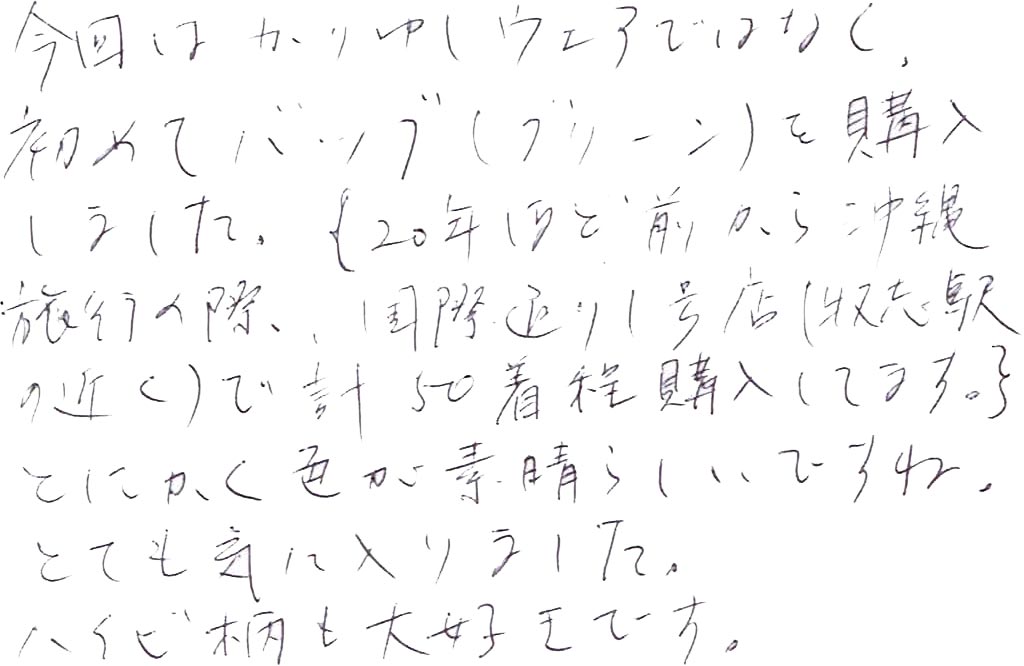 今回はかりゆしウェアではなく、
初めてバッグ(グリーン)を購入
しました。{20年ほど前から沖縄
旅行の際、国際通り1号店(牧志駅
の近く)で計50着程購入してます。}
とにかく色が素晴らしいですね。
とても気に入りました。
ハイビ柄も大好きです。